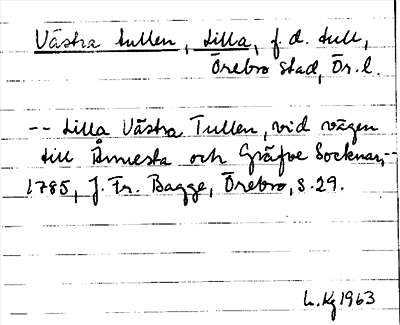 Västra tullen, Lilla, f.d. tull,
Örebro stad, Ör. l.
-- Lilla Västra Tullen, vid vägen
till Ånnesta och Gräfve Socknar,--
1785, J. Fr. Bagge, Örebro, s. 29.
L. Kg 1963